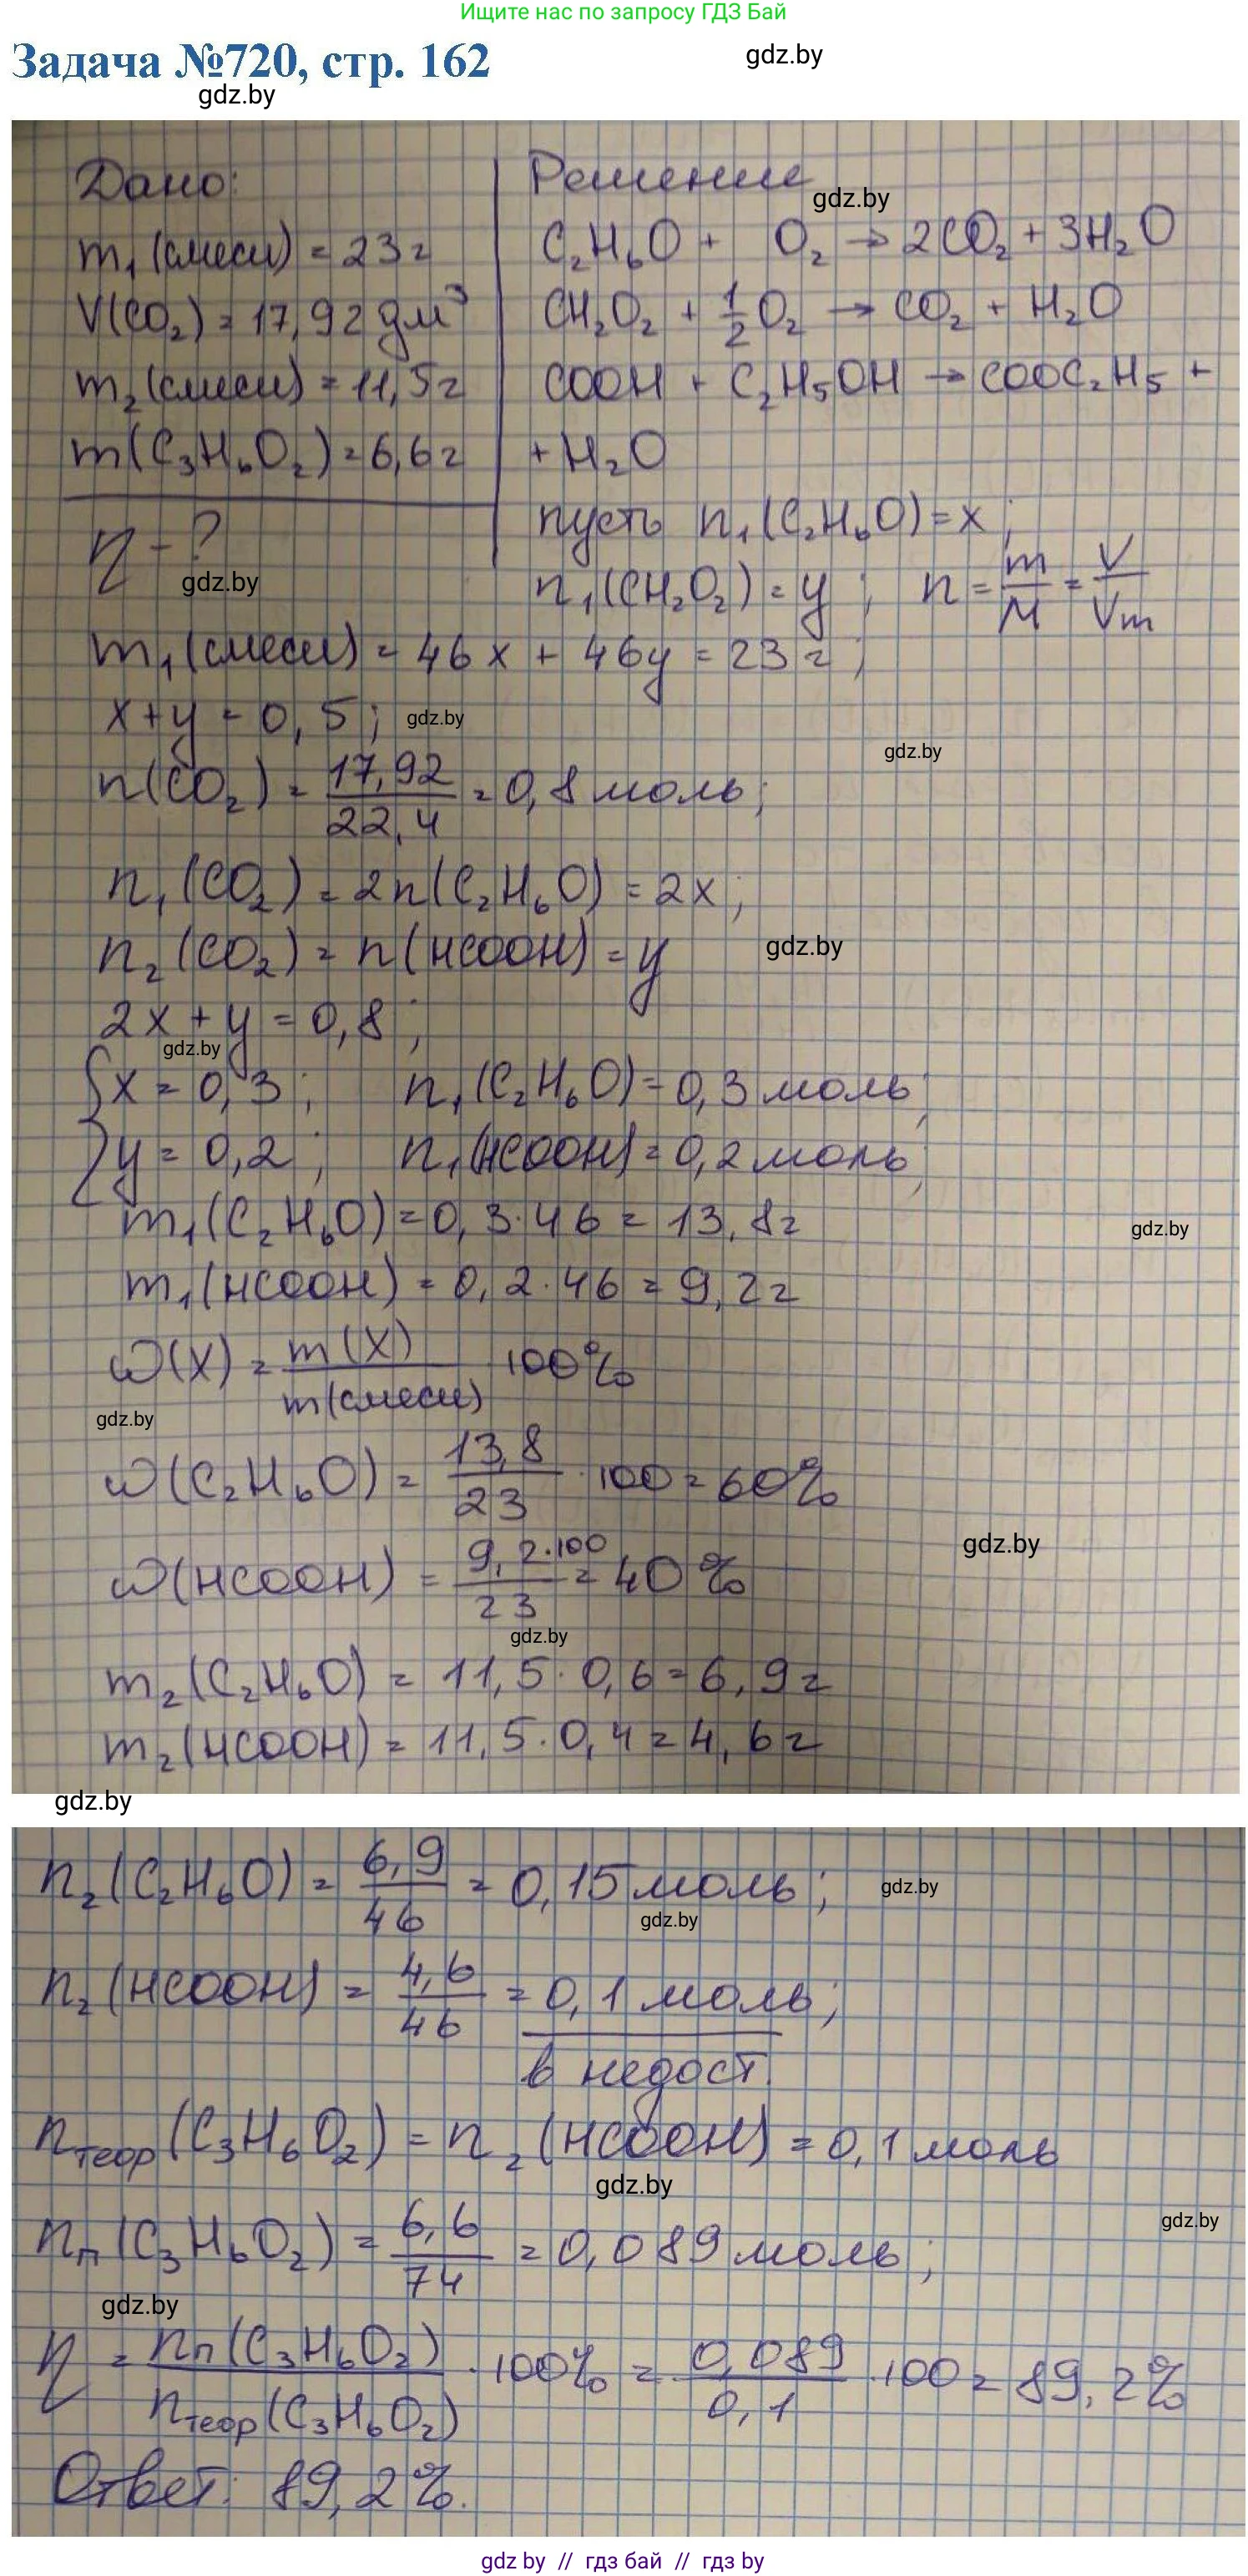 Ищите нас по запросу ГДЗ Бай
Задача №720, стр. 162
gdz.by
gdz.by
Дано:
m₁(смеси) = 23 г
V(CO₂) = 17,92 дм³
m₂(смеси) = 11,5 г
m(C₃H₆O₂) = 6,6 г
η - ?
gdz.by
Решение
gdz.by
C₂H₆O + O₂ → 2CO₂ + 3H₂O
CH₂O₂ + 1/2 O₂ → CO₂ + H₂O
COOH + C₂H₅OH → COOC₂H₅ +
+ H₂O
пусть n₁(C₂H₆O) = x;
n₁(CH₂O₂) = y; n = m/M = V/Vm
m₁(смеси) = 46x + 46y = 23 г;
x + y = 0,5;
gdz.by
gdz.by
n(CO₂) = 17,92/22,4 = 0,8 моль;
n₁(CO₂) = 2n(C₂H₆O) = 2x;
n₂(CO₂) = n(HCOOH) = y
gdz.by
2x + y = 0,8;
gdz.by
{x = 0,3; n₁(C₂H₆O) = 0,3 моль;
{y = 0,2; n₁(HCOOH) = 0,2 моль;
m₁(C₂H₆O) = 0,3·46 = 13,8 г
gdz.by
m₁(HCOOH) = 0,2·46 = 9,2 г
ω(X) = m(X)/m(смеси) 100%
gdz.by
ω(C₂H₆O) = 13,8/23 · 100 = 60%
gdz.by
ω(HCOOH) = 9,2·100/23 = 40%
gdz.by
m₂(C₂H₆O) = 11,5·0,6 = 6,9 г
m₂(HCOOH) = 11,5·0,4 = 4,6 г
gdz.by
n₂(C₂H₆O) = 6,9/46 = 0,15 моль;
gdz.by
gdz.by
n₂(HCOOH) = 4,6/46 = 0,1 моль;
в недост.
nтеор(C₃H₆O₂) = n₂(HCOOH) = 0,1 моль
gdz.by
gdz.by
nп(C₃H₆O₂) = 6,6/74 = 0,089 моль;
gdz.by
η = nп(C₃H₆O₂)/nтеор(C₃H₆O₂) · 100% = 0,089/0,1 · 100 = 89,2%
Ответ: 89,2%.
gdz by // гдз бай // гдз by